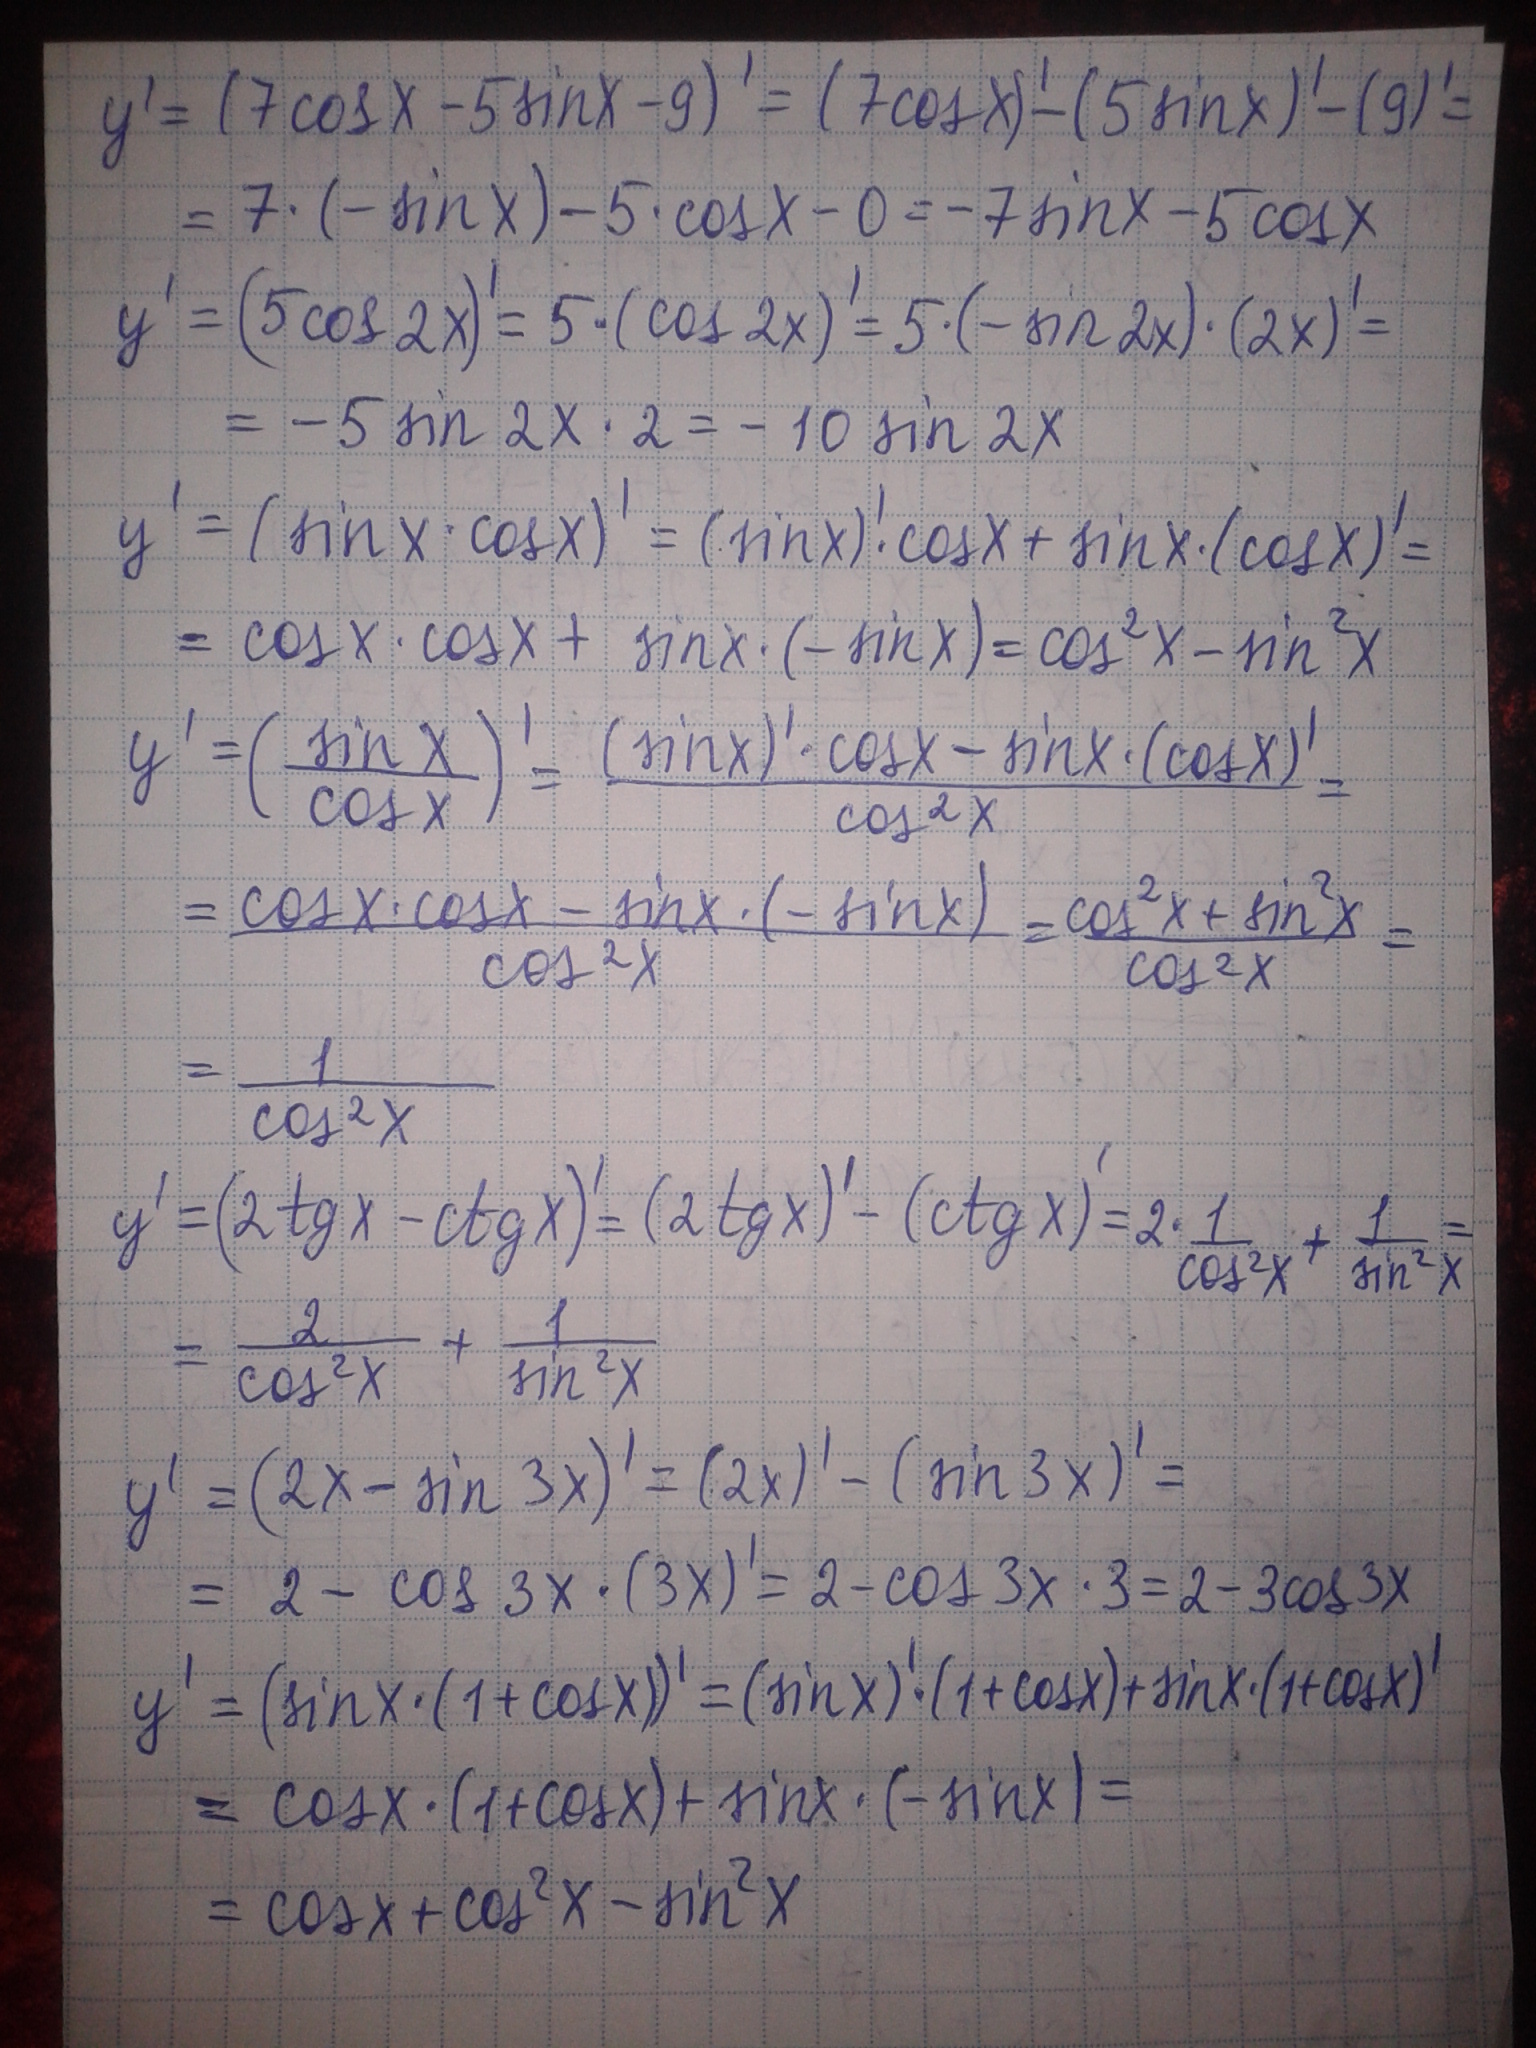 y' = (7cosx - 5sinx - 9)' = (7cosx)' - (5sinx)' - (9)' =
= 7·(-sinx) - 5·cosx - 0 = -7sinx - 5cosx
y' = (5cos2x)' = 5·(cos2x)' = 5·(-sin2x)·(2x)' =
= -5 sin 2x · 2 = -10 sin 2x
y' = (sinx·cosx)' = (sinx)'·cosx + sinx·(cosx)' =
= cosx·cosx + sinx·(-sinx) = cos²x - sin²x
y' = (sinx/cosx)' = ((sinx)'·cosx - sinx·(cosx)')/cos²x =
= (cosx·cosx - sinx·(-sinx))/cos²x = (cos²x + sin²x)/cos²x =
= 1/cos²x
y' = (2tgx - ctgx)' = (2tgx)' - (ctgx)' = 2·1/cos²x + 1/sin²x =
= 2/cos²x + 1/sin²x
y' = (2x - sin3x)' = (2x)' - (sin3x)' =
= 2 - cos3x·(3x)' = 2 - cos3x·3 = 2 - 3cos3x
y' = (sinx·(1+cosx))' = (sinx)'·(1+cosx) + sinx·(1+cosx)'
= cosx·(1+cosx) + sinx·(-sinx) =
= cosx + cos²x - sin²x